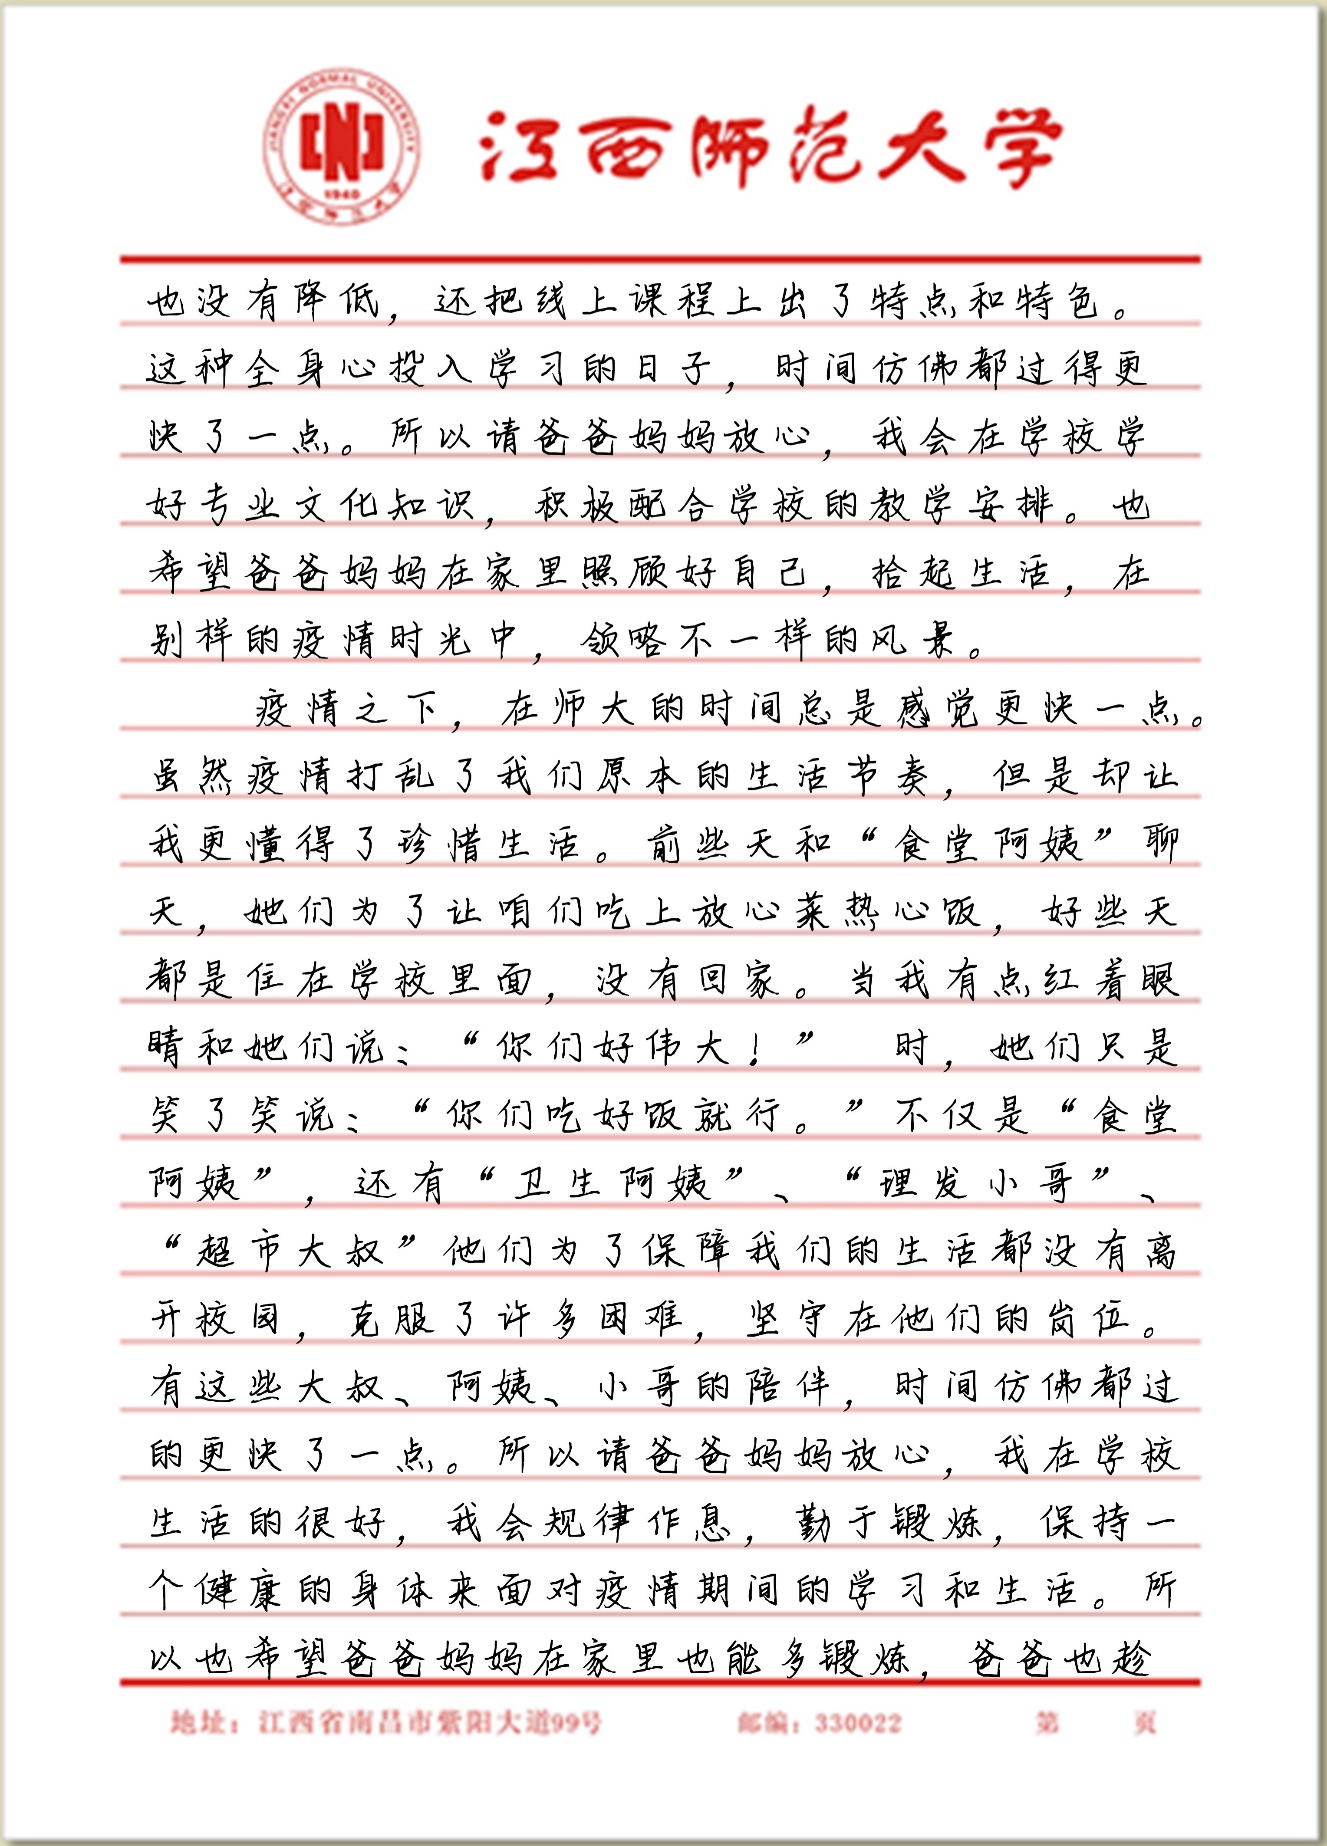 JIANGXI NORMAL UNIVERSITY
1940
江西师范大学
江西师范大学
也没有降低，还把线上课程上出了特点和特色。
这种全身心投入学习的日子，时间仿佛都过得更
快了一点。所以请爸爸妈妈放心，我会在学校学
好专业文化知识，积极配合学校的教学安排。也
希望爸爸妈妈在家里照顾好自己，拾起生活，在
别样的疫情时光中，领略不一样的风景。
疫情之下，在师大的时间总是感觉更快一点。
虽然疫情打乱了我们原本的生活节奏，但是却让
我更懂得了珍惜生活。前些天和“食堂阿姨”聊
天，她们为了让咱们吃上放心菜热心饭，好些天
都是住在学校里面，没有回家。当我有点红着眼
睛和她们说：“你们好伟大！” 时，她们只是
笑了笑说：“你们吃好饭就行。”不仅是“食堂
阿姨”，还有“卫生阿姨”、“理发小哥”、
“超市大叔”他们为了保障我们的生活都没有离
开校园，克服了许多困难，坚守在他们的岗位。
有这些大叔、阿姨、小哥的陪伴，时间仿佛都过
的更快了一点。所以请爸爸妈妈放心，我在学校
生活的很好，我会规律作息，勤于锻炼，保持一
个健康的身体来面对疫情期间的学习和生活。所
以也希望爸爸妈妈在家里也能多锻炼，爸爸也趁
地址：江西省南昌市紫阳大道99号 邮编：330022 第 页